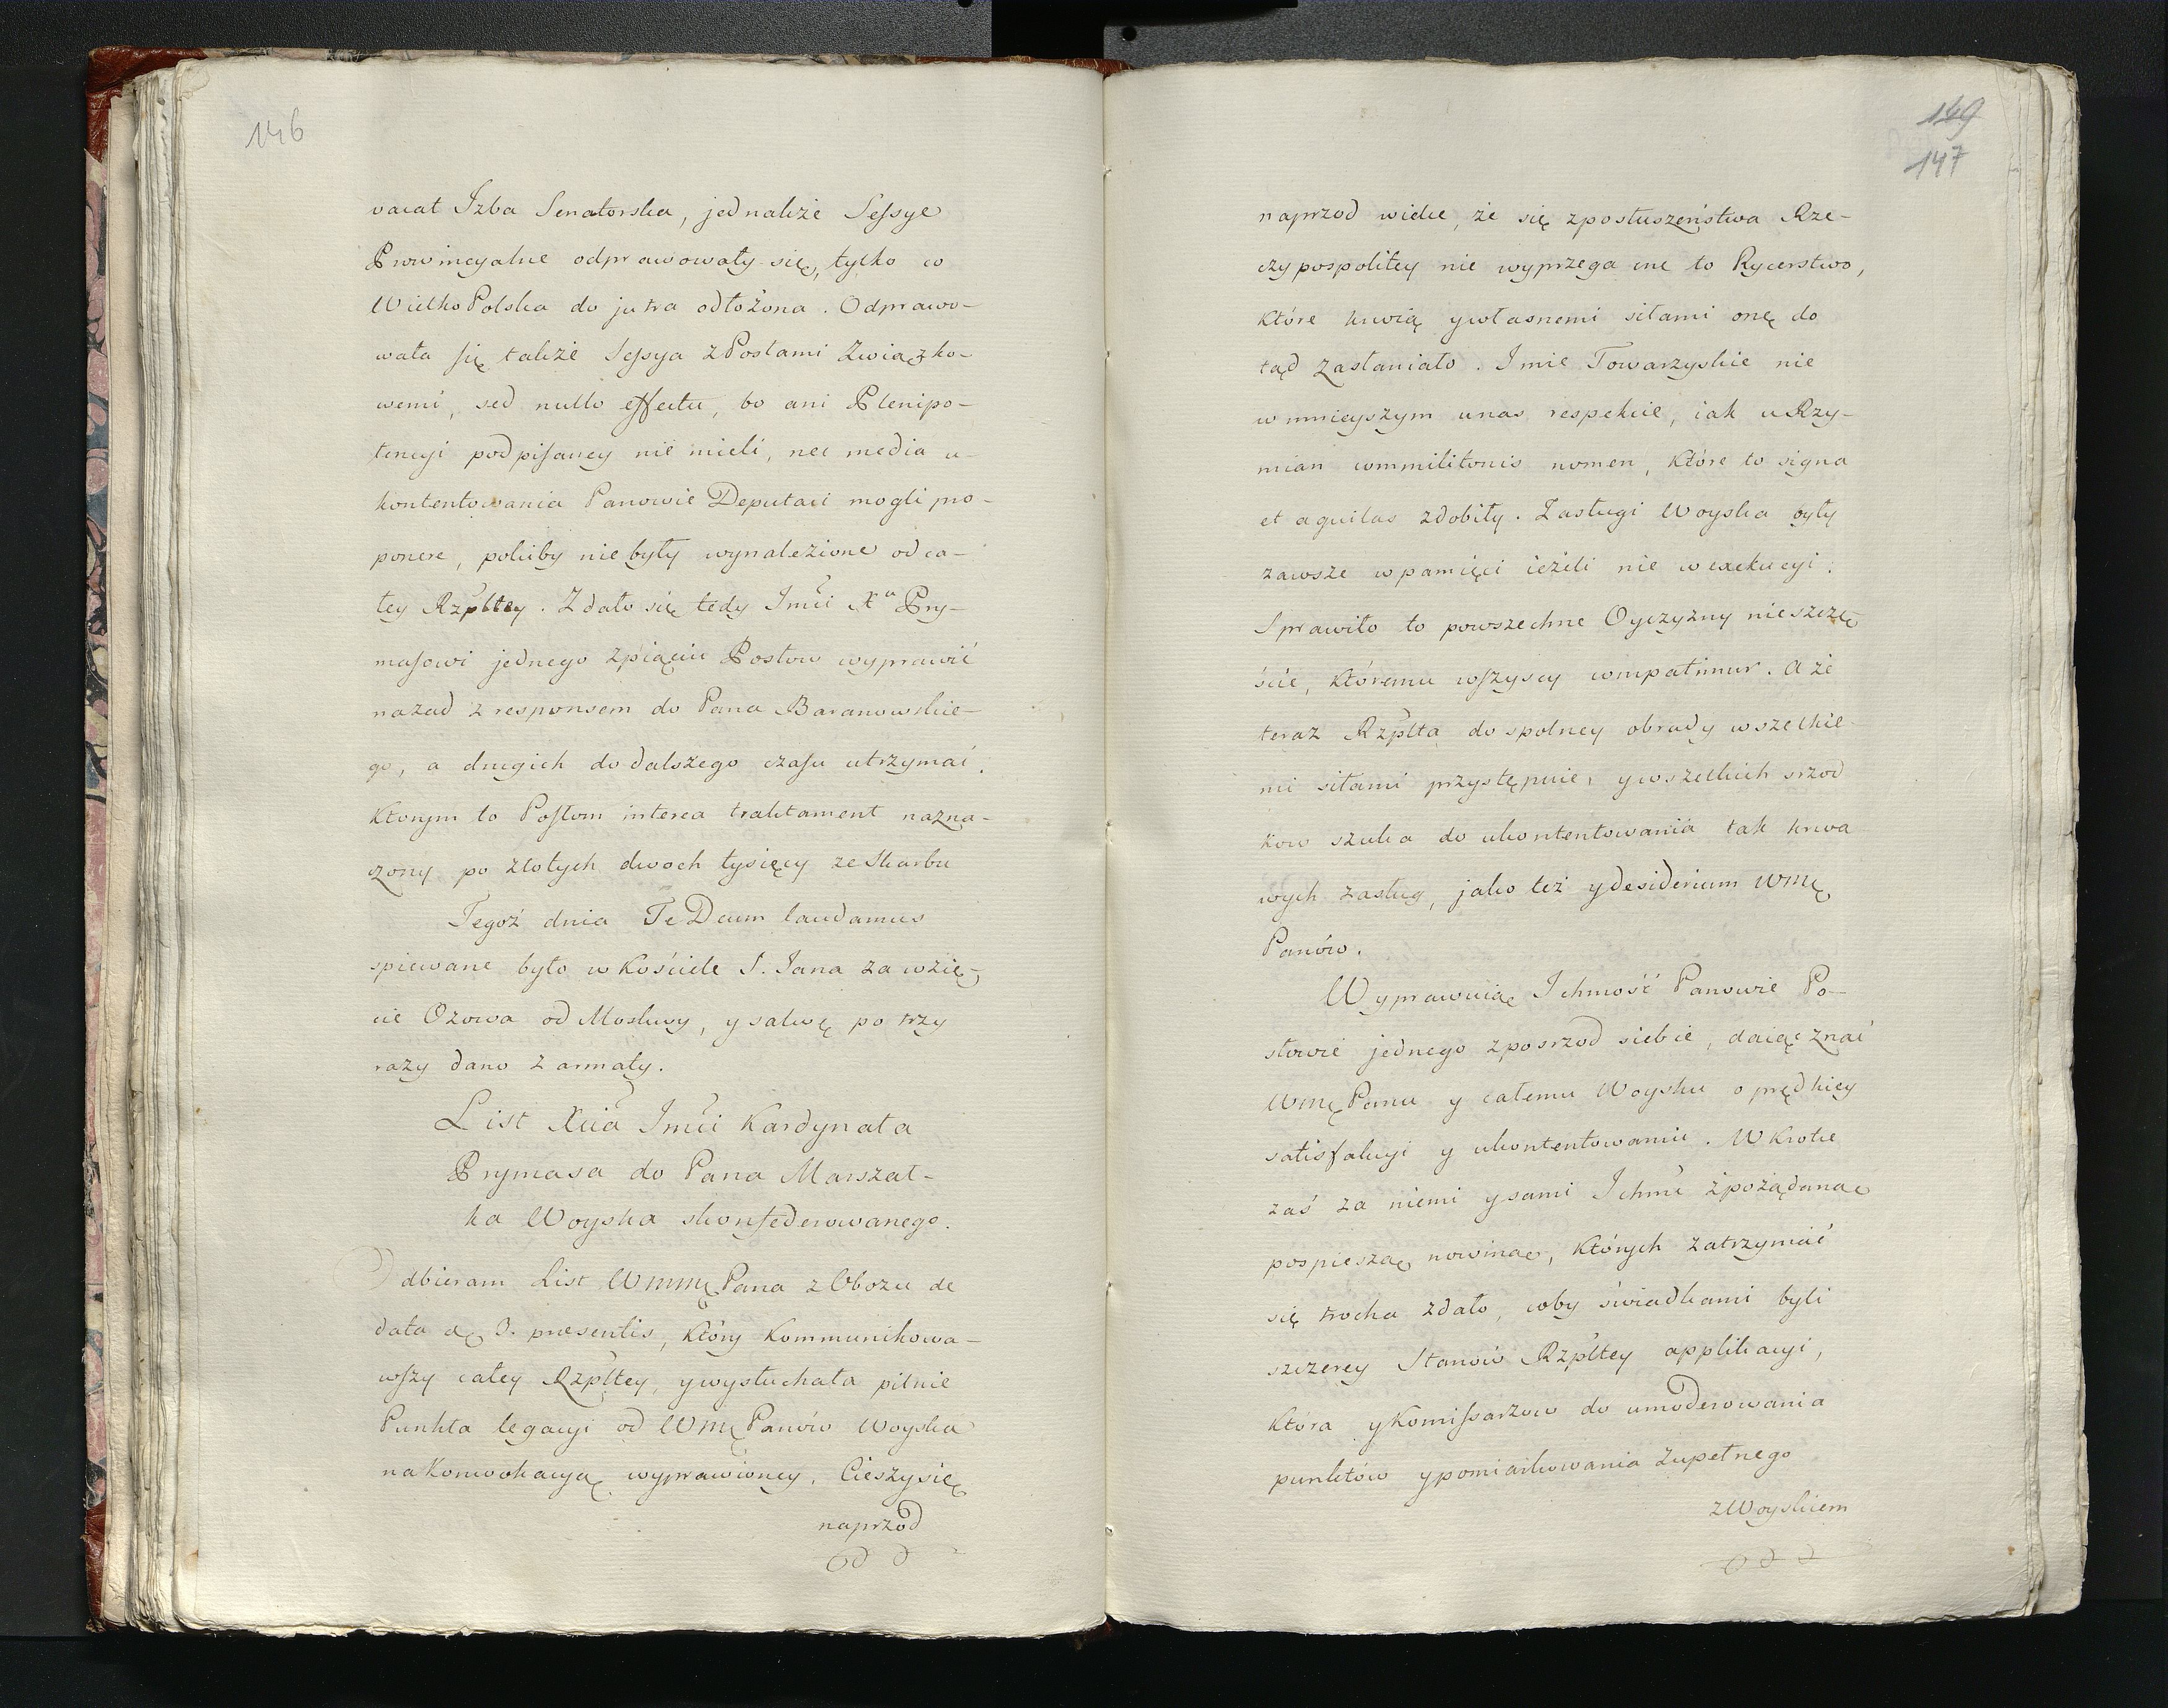 146
vacat Izba Senatorska, jednakże Sessye
Prowincyalne odprawowały się, tylko co
WielkoPolska do jutra odłożona. Odprawo-
wała się także Sessya z Posłami Związko-
wemi, sed nullo effectu, bo ani Plenipo-
tencyi podpisaney nie mieli, nec media u-
kontentowania Panowie Deputaci mogli pro-
ponere, pokiby nie były wynalezione od ca-
łey Rzpltey. Zdało się tedy Jmći Xu Pry-
masowi jednego zpiąciu Posłow wyprawić
nazad z responsem do Pana Baranowskie-
go, a drugich do dalszego czasu utrzymać.
Ktorym to Posłom interea traktament nazna-
czony po złotych dwoch tysięcy ze Skarbu
Tegoż dnia Te Deum laudamus
spiewane było w Kościele S. Jana za wzię-
cie Ozowa od Moskwy, y salwę po trzy
razy dano z armaty.
List Xcia Jmći Kardynała
Prymasa do Pana Marszał-
ka Woyska skonfederowanego.
Odbieram List WmmęPana z Obozu de
data d. 3. presentis, który kommunikowa-
wszy całey Rzpltey, y wysłuchała pilnie
Punkta legacyi od WmęPanów Woyska
na Konwokacyą wyprawioney. Cieszy się
naprzod
149
147
naprzod wielce, że się zposłuszeństwa Rze-
czypospolitey nie wyprzega one to Rycerstwo,
które krwią y własnemi siłami onę do
tąd zasłaniało. Imie Towarzyskie nie
w mnieyszym u nas respekcie, iak u Rzy-
mian commilitonis nomen, które to signa
et aquilas zdobiły. Zasługi Woyska były
zawsze w pamięci ieżeli nie w exekucyi.
Sprawiło to powszechne Oyczyzny nieszczę-
ście, któremu wszyscy compatimur. A że
teraz Rzplta do spolney obrady wszelkie-
mi siłami przystępuie, y wszelkich srzod
kow szuka do ukontentowania tak krwa
wych zasług, jako też y desiderium Wmę
Panów.
Wyprawuią Ichmość Panowie Po-
słowie jednego zposrzod siebie, daiąc znać
WmęPanu y całemu Woysku o prędkiey
satisfakcyi y ukontentowaniu. W krotce
zaś za niemi y sami Ichmć zpożądaną
pospieszą nowiną, których zatrzymać
się trocha zdało, coby świadkami byli
szczerey Stanów Rzpltey applikacyi,
która y Komissarzow do umoderowania
punktów y pomiarkowania zupełnego
zWoyskiem